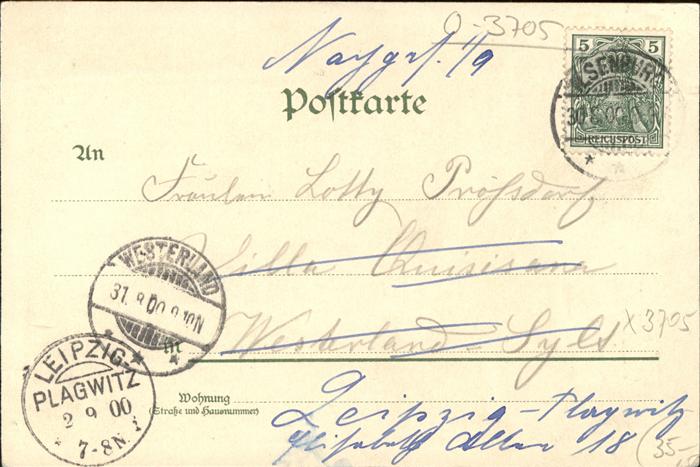 O-3705
Nachges. 1/9
5 5
REICHSPOST
ILSENBURG
30 8 00
Postkarte
An
Fräulein Lotty Prößdorf
WESTERLAND
31.8.00.8-10N
Villa Quisisana
in Westerland-Sylt
X 3705
LEIPZIG-
PLAGWITZ
2 9 00
7-8N. i
Wohnung
(Straße und Hausnummer)
Leipzig-Plagwitz
Elisabeth Allee 18
35-